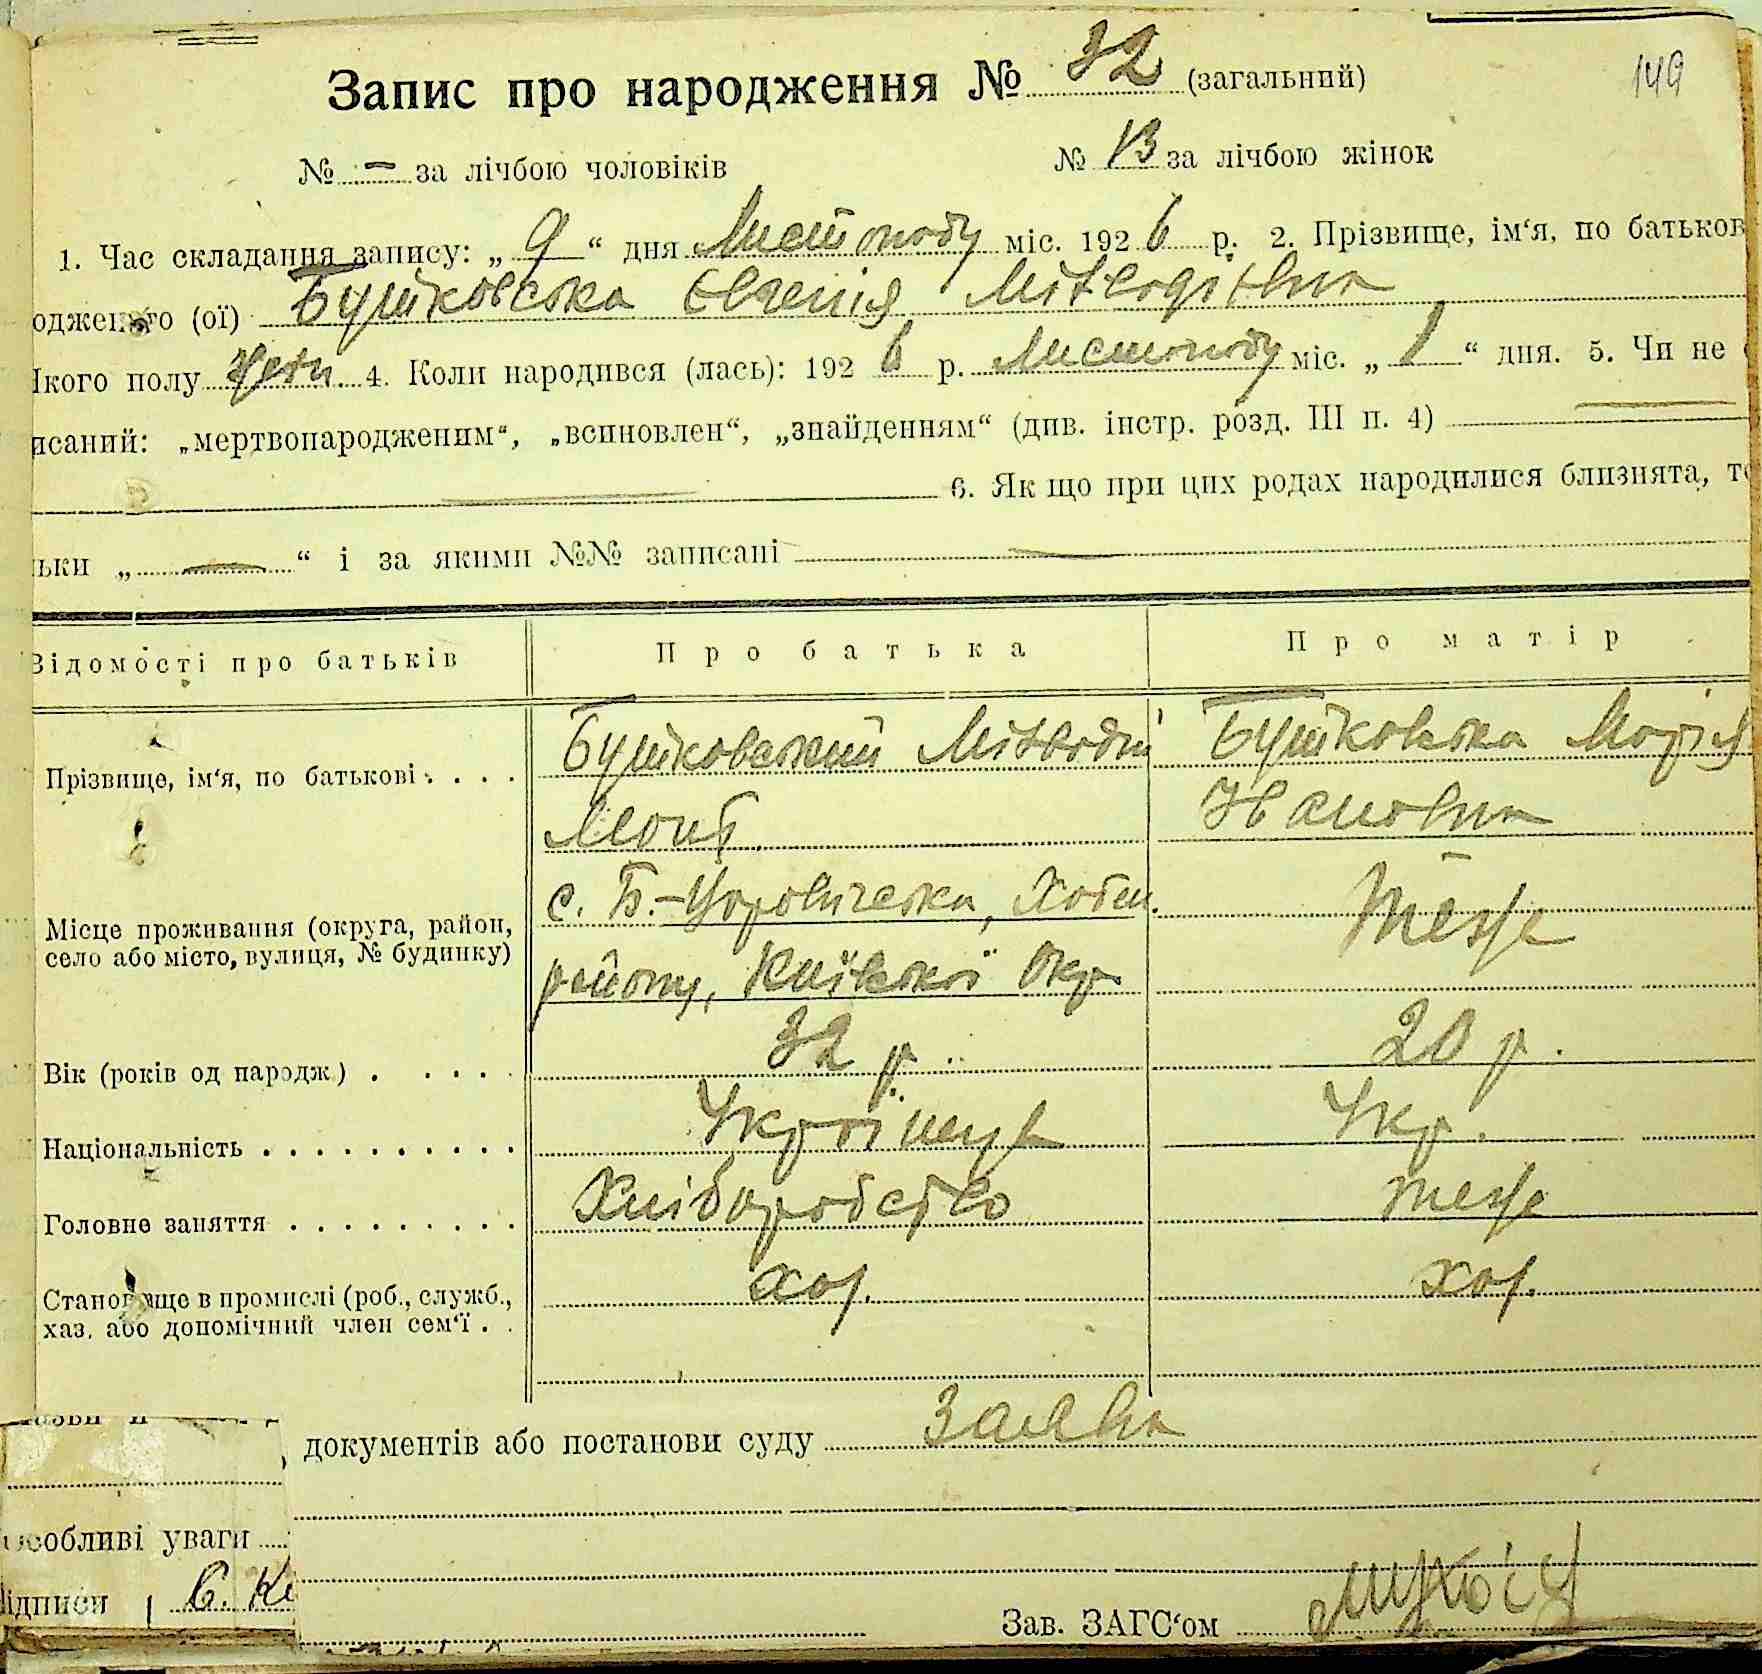 Запис про народження № 32 (загальний)
149
№ - за лічбою чоловіків № 13 за лічбою жінок
1. Час складання запису: „ 9 “ дня Листопаду міс. 192 6 р. 2. Прізвище, ім‘я, по батьков
одженого (ої) Бутковська Євгенія Мітводівна
Якого полу жін. 4. Коли народився (лась): 192 6 р. Листопаду міс. „ 1 “ дня. 5. Чи не
исаний: „мертвонародженим“, „всиновлен“, „знайденням“ (див. інстр. розд. III п. 4)
6. Як що при цих родах народилися близнята, то
льки „ — “ і за якими №№ записані —
Відомості про батьків Про батька Про матір
Прізвище, ім‘я, по батькові . . . . Бутковський Бутковська Марія
Івановна
Місце проживання (округа, район, с. Хабен. теж
село або місто, вулиця, № будинку) району, Київської Окр.
Вік (років од народж.) . . . . . 32 р. 20 р.
Національність . . . . . . . . . . Українець Укр.
Головне заняття . . . . . . . . . Хліборобство теж
Становище в промислі (роб., служб., хаз. хаз.
хаз. або допомічний член сем‘ї . .
документів або постанови суду Заява
особливі уваги
ідписи
Зав. ЗАГС‘ом